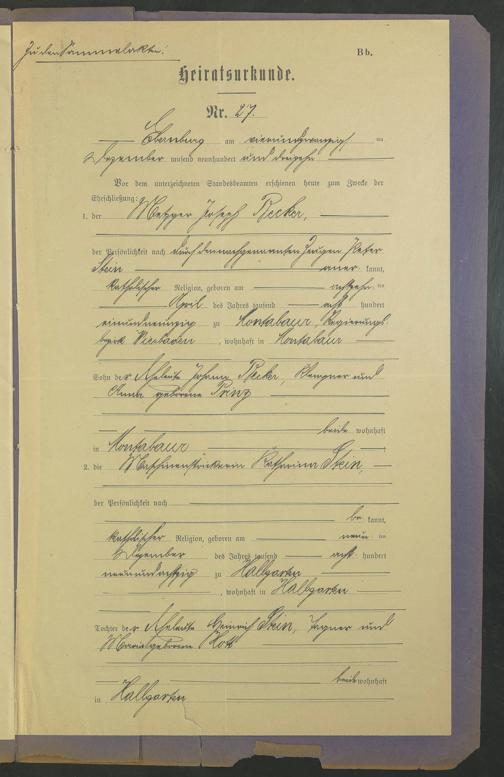 Zu den Sammelakten.
Bb.
Heiratsurkunde.
Nr. 27.
Ebernburg am vierundzwanzigsten
Dezember tausend neunhundert und dreizehn
Vor dem unterzeichneten Standesbeamten erschienen heute zum Zwecke der
Eheschließung:
1. der Metzger Joseph Becker,
der Persönlichkeit nach durch den nachgenannten Zeugen Peter
Stein anerkannt,
katholischer Religion, geboren am achtzehnten
April des Jahres tausend acht hundert
einundneunzig zu Montabaur, Regierungs-
bezirk Wiesbaden, wohnhaft in Montabaur
Sohn der Eheleute Johann Becker, Klempner und
Anna geborene Prinz
beide wohnhaft
in Montabaur
2. die Maschinenstrickerin Katharina Stein,
der Persönlichkeit nach
bekannt,
katholischer Religion, geboren am neunten
Dezember des Jahres tausend acht hundert
neunundachtzig zu Hallgarten
, wohnhaft in Hallgarten
Tochter der Eheleute Heinrich Stein, Tagner und
Maria geborenen
beide wohnhaft
in Hallgarten